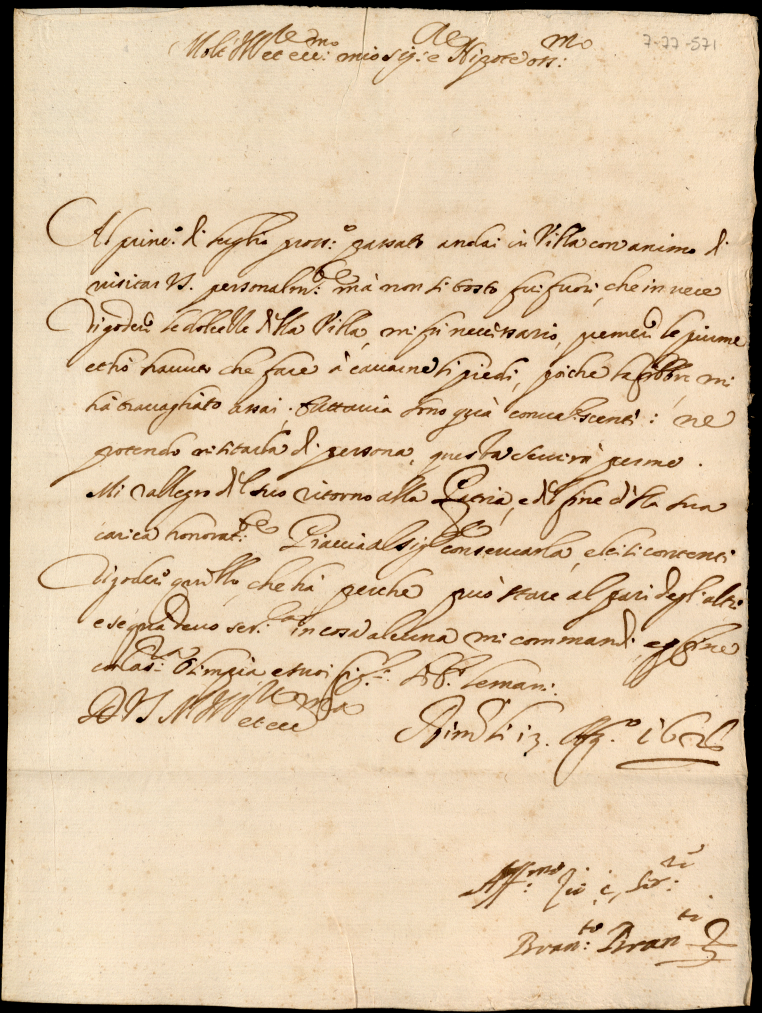 7-77-571
Molt' Ill.re et ecc.mo mio Sig.r e Nipote oss.mo
Al princ.o di luglio pross.o passato andai in Villa con animo di
visitar VS. personalm.te mà non si tosto fui fuori, che in vece
di goder le dolcezze della Villa, mi fù necessario, premer le piume
et hò hauuto che fare à cauarne li piedi, poiche la febbre mi
hà trauagliato assai; tuttauia sono già conualescente: ne
potendo visitarla di persona, questa seruirà per me.
Mi rallegro del suo ritorno alla Patria, e del fine della sua
carica honorat.te Piaccia al Sig.re conseruarla, e lei si contenti
di goder quello, che hà perche può stare al pari degli altri
e se quà deuo seruirla in cosa alcuna mi commandi, e per fine
con la S.ra Olimpia e suoi fig.li li b. le mani.
D VS M. Ill.re et ecc.ma
Rim.o li 13. Ag.o 1626
Aff.mo Zio e Ser.re